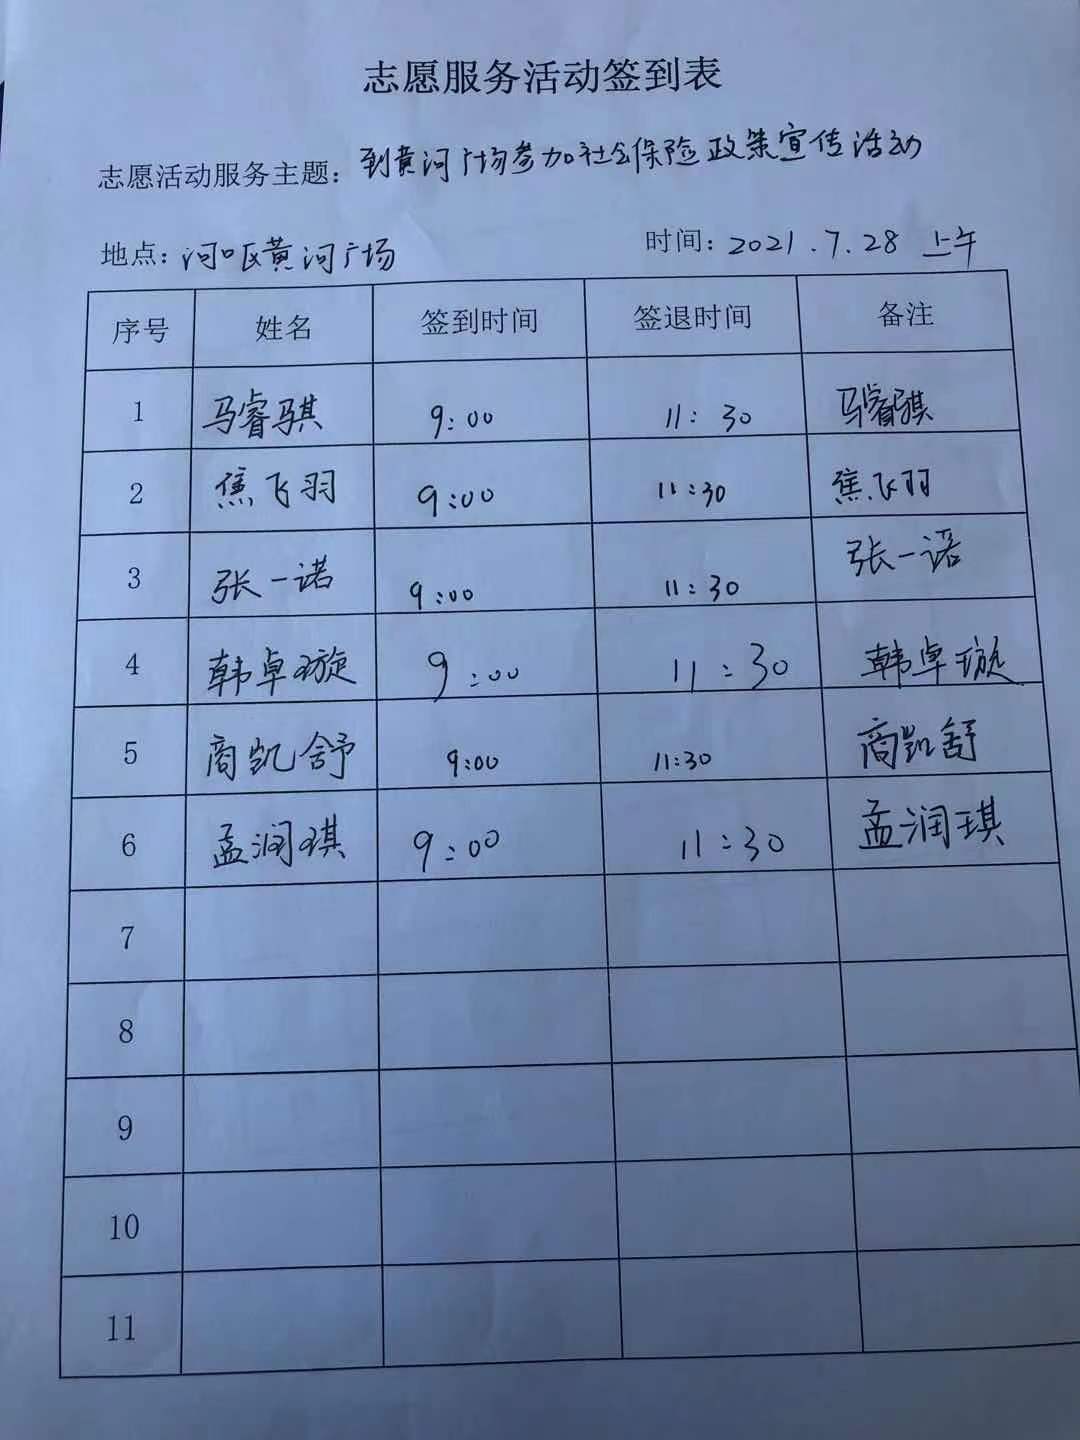 志愿服务活动签到表
志愿活动服务主题：到黄河广场参加社会保险政策宣传活动
地点：河口区黄河广场 时间：2021.7.28 上午
序号 姓名 签到时间 签退时间 备注
1 马睿骐 9:00 11:30 马睿骐
2 焦飞羽 9:00 11:30 焦飞羽
3 张一诺 9:00 11:30 张一诺
4 韩卓璇 9:00 11:30 韩卓璇
5 商凯舒 9:00 11:30 商凯舒
6 孟润琪 9:00 11:30 孟润琪
7
8
9
10
11